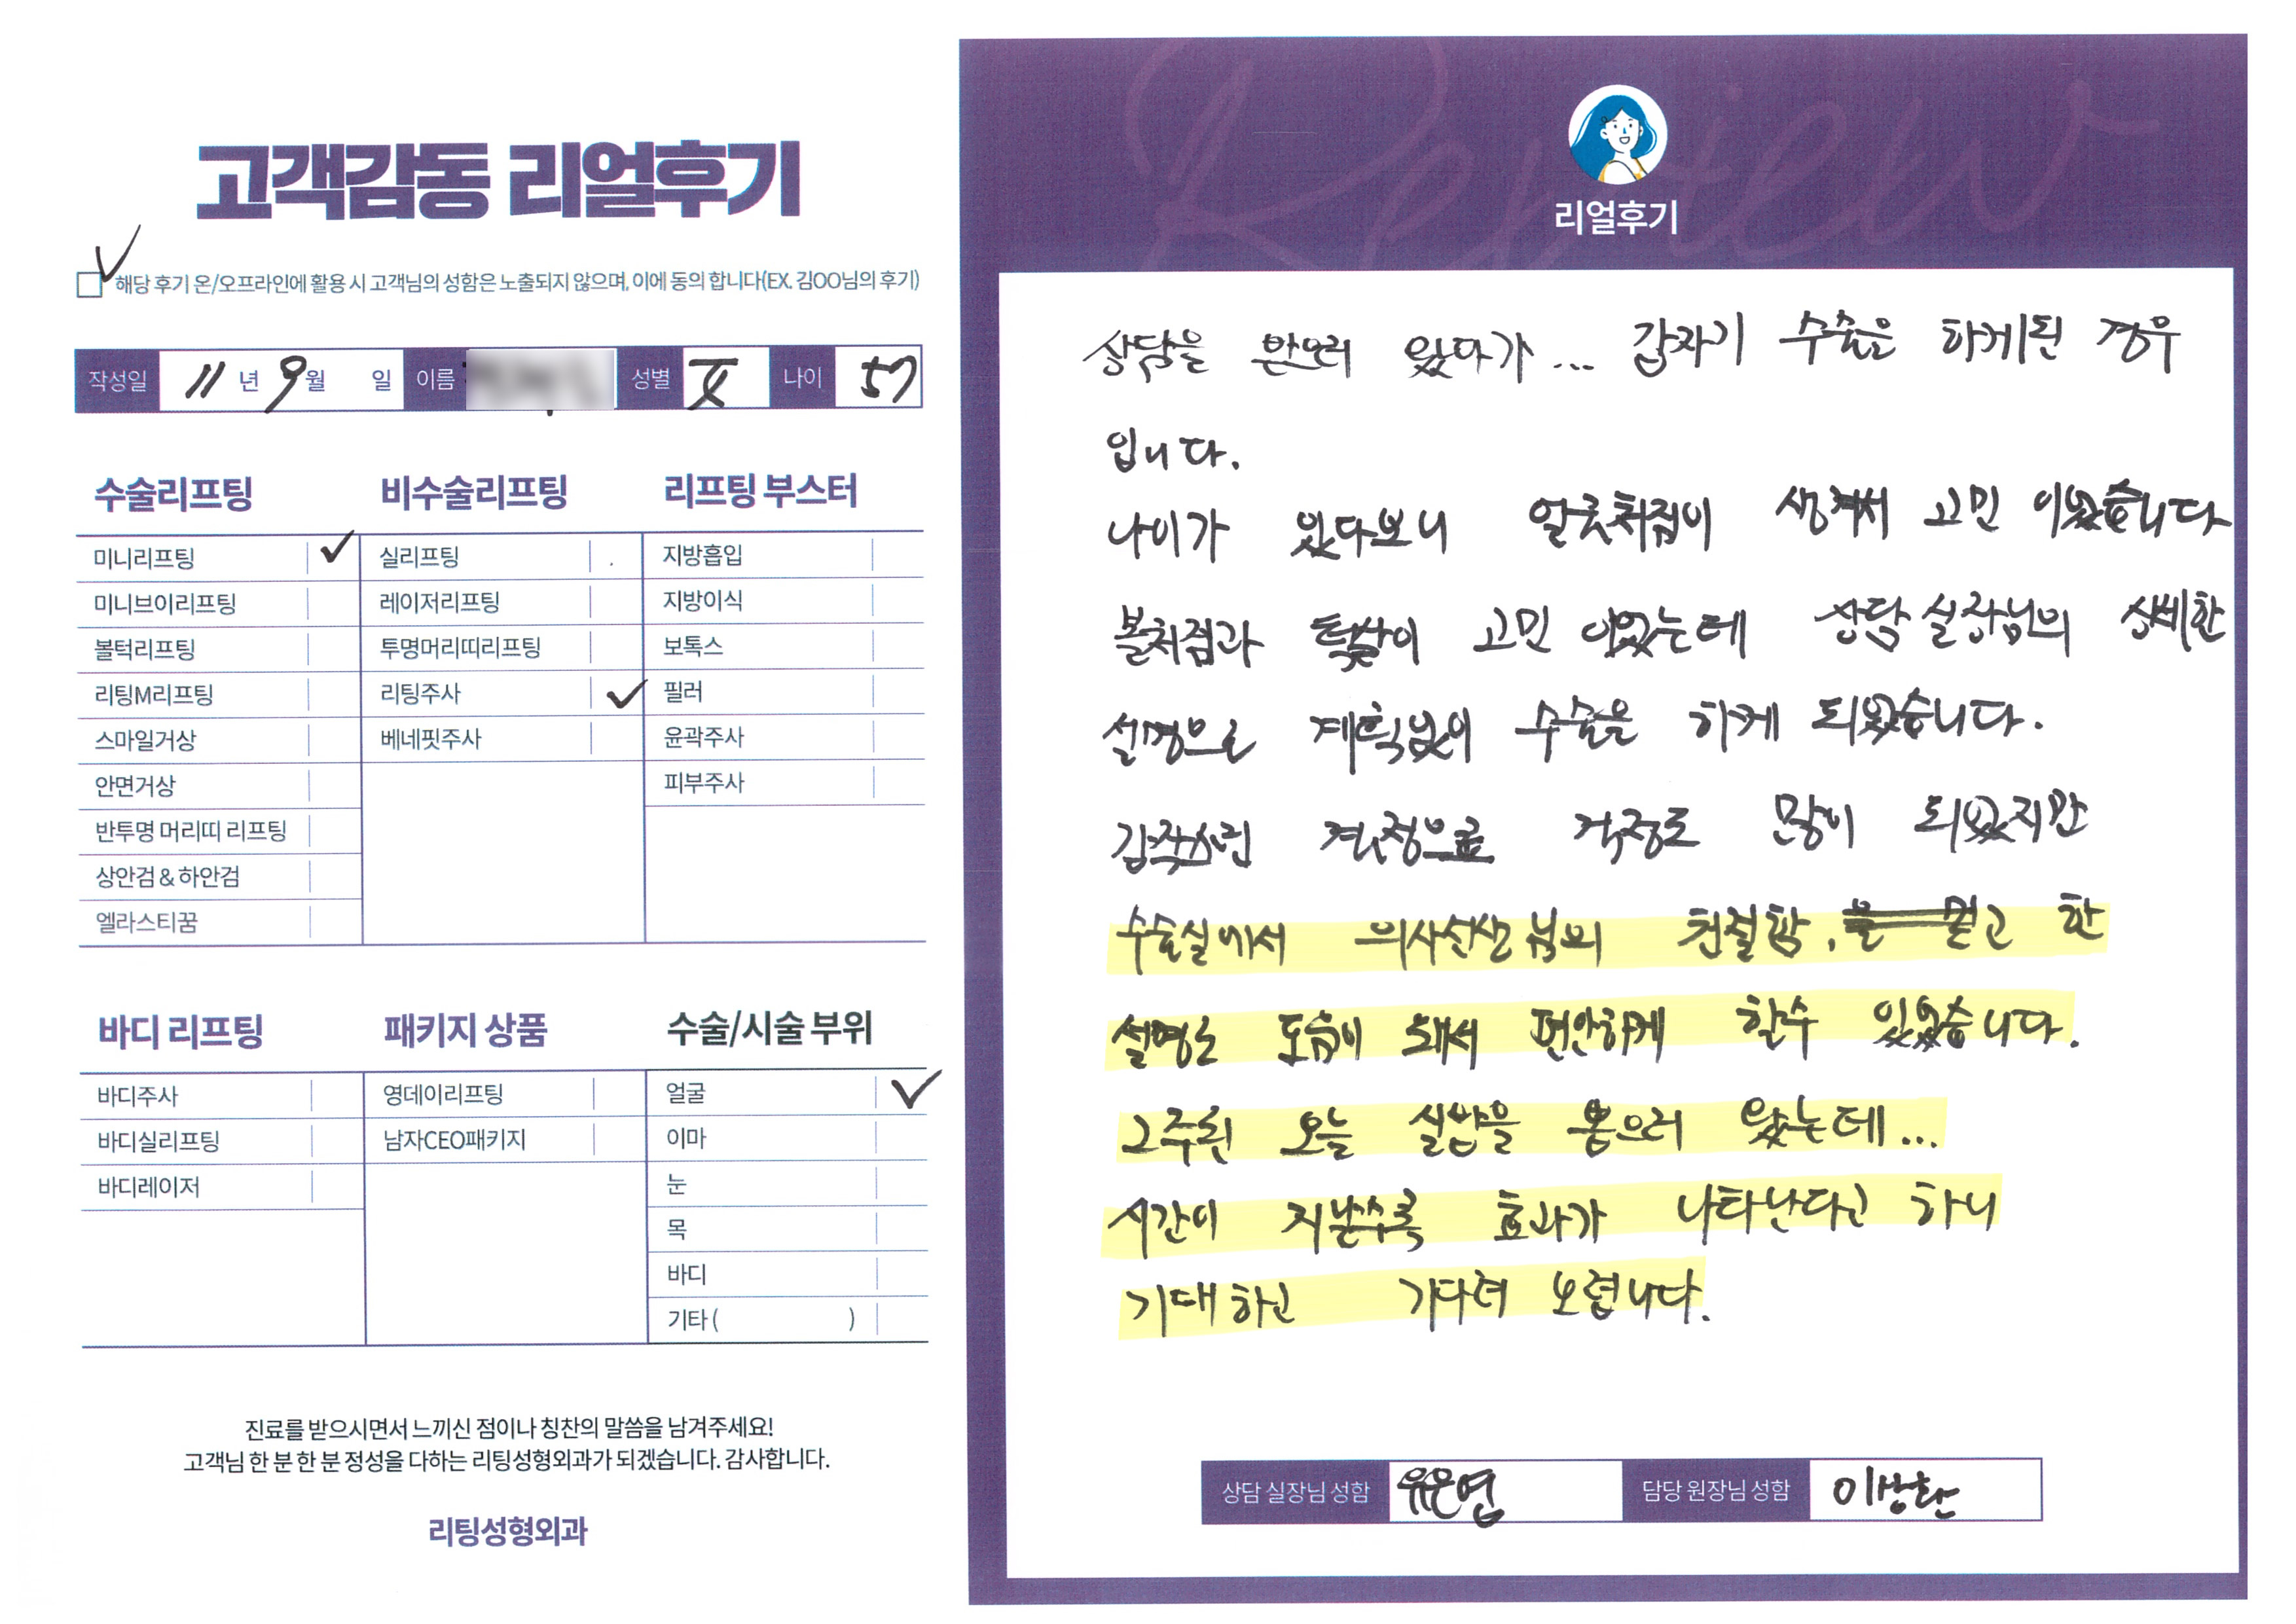 고객감동 리얼후기
해당 후기 온/오프라인에 활용 시 고객님의 성함은 노출되지 않으며, 이에 동의 합니다(EX. 김OO님의 후기)
작성일 11 년 9 월 일 이름 성별 女 나이 57
수술리프팅
미니리프팅
미니브이리프팅
볼턱리프팅
리팅M리프팅
스마일거상
안면거상
반투명 머리띠 리프팅
상안검 & 하안검
엘라스티꿈
비수술리프팅
실리프팅
레이저리프팅
투명머리띠리프팅
리팅주사
베네핏주사
리프팅 부스터
지방흡입
지방이식
보톡스
필러
윤곽주사
피부주사
바디 리프팅
바디주사
바디실리프팅
바디레이저
패키지 상품
영데이리프팅
남자CEO패키지
수술/시술 부위
얼굴
이마
눈
목
바디
기타 ( )
진료를 받으시면서 느끼신 점이나 칭찬의 말씀을 남겨주세요!
고객님 한 분 한 분 정성을 다하는 리팅성형외과가 되겠습니다. 감사합니다.
리팅성형외과
Review
리얼후기
상담을 받으러 왔다가... 갑자기 수술을 하게된 경우
입니다.
나이가 있다보니 얼굴처짐이 생겨서 고민 이였습니다
볼처짐과 턱살이 고민 이였는데 상담 실장님의 상세한
설명으로 계획없이 수술을 하게 되였습니다.
갑작스런 결정으로 걱정도 많이 되였지만
수술실에서 의사선생님의 친절함, 믿고 한
설명은 도움이 돼서 편안하게 할수 있었습니다.
2주뒨 오늘 실밥을 뽑으러 왔는데...
시간이 지날수록 효과가 나타난다고 하니
기대하고 기다려 보렵니다.
상담 실장님 성함 유은엽 담당 원장님 성함 이상환